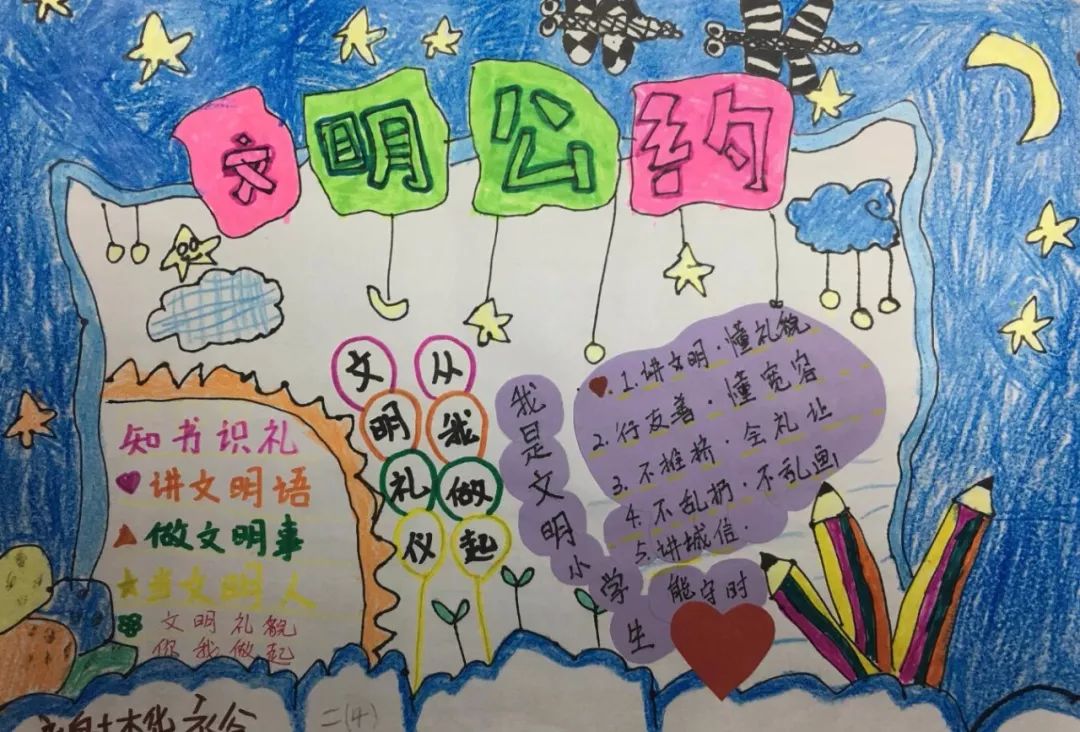 文明公约
知书识礼
讲文明语
做文明事
当文明人
文明礼貌
你我做起
文明礼仪
从我做起
我是文明小学生
1.讲文明·懂礼貌
2.行友善·懂宽容
3.不推挤·会礼让
4.不乱扔·不乱画
5.讲城信·
能守时
二(4)